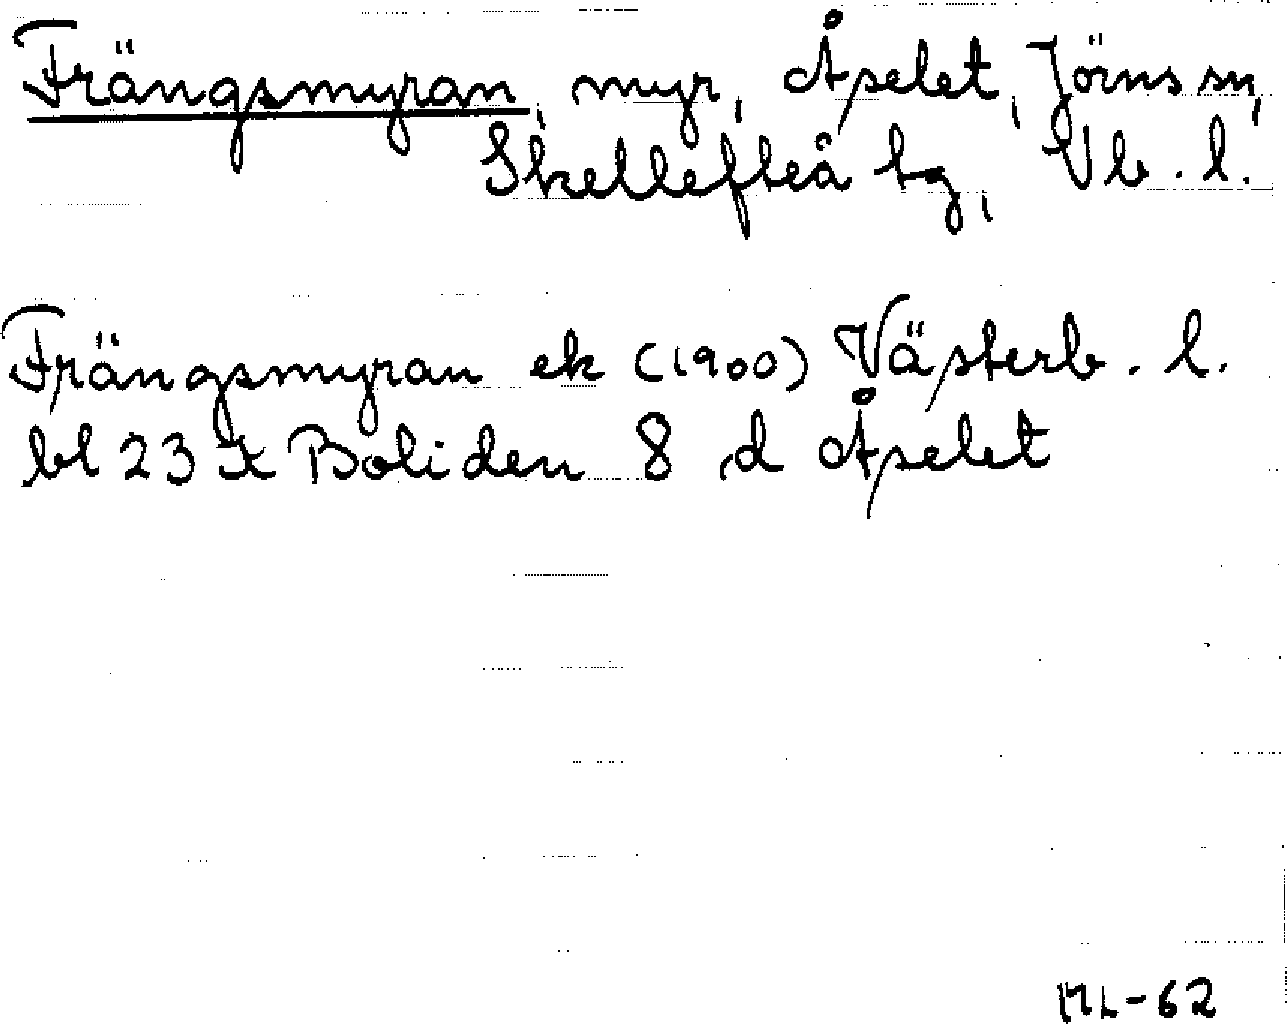 Frängsmyran, myr, Åselet, Jörns sn,
Skellefteå tg, Vb. l.
Frängsmyran ek (1900) Västerb. l.
bl 23 K Boliden 8 d Åselet
ML-62